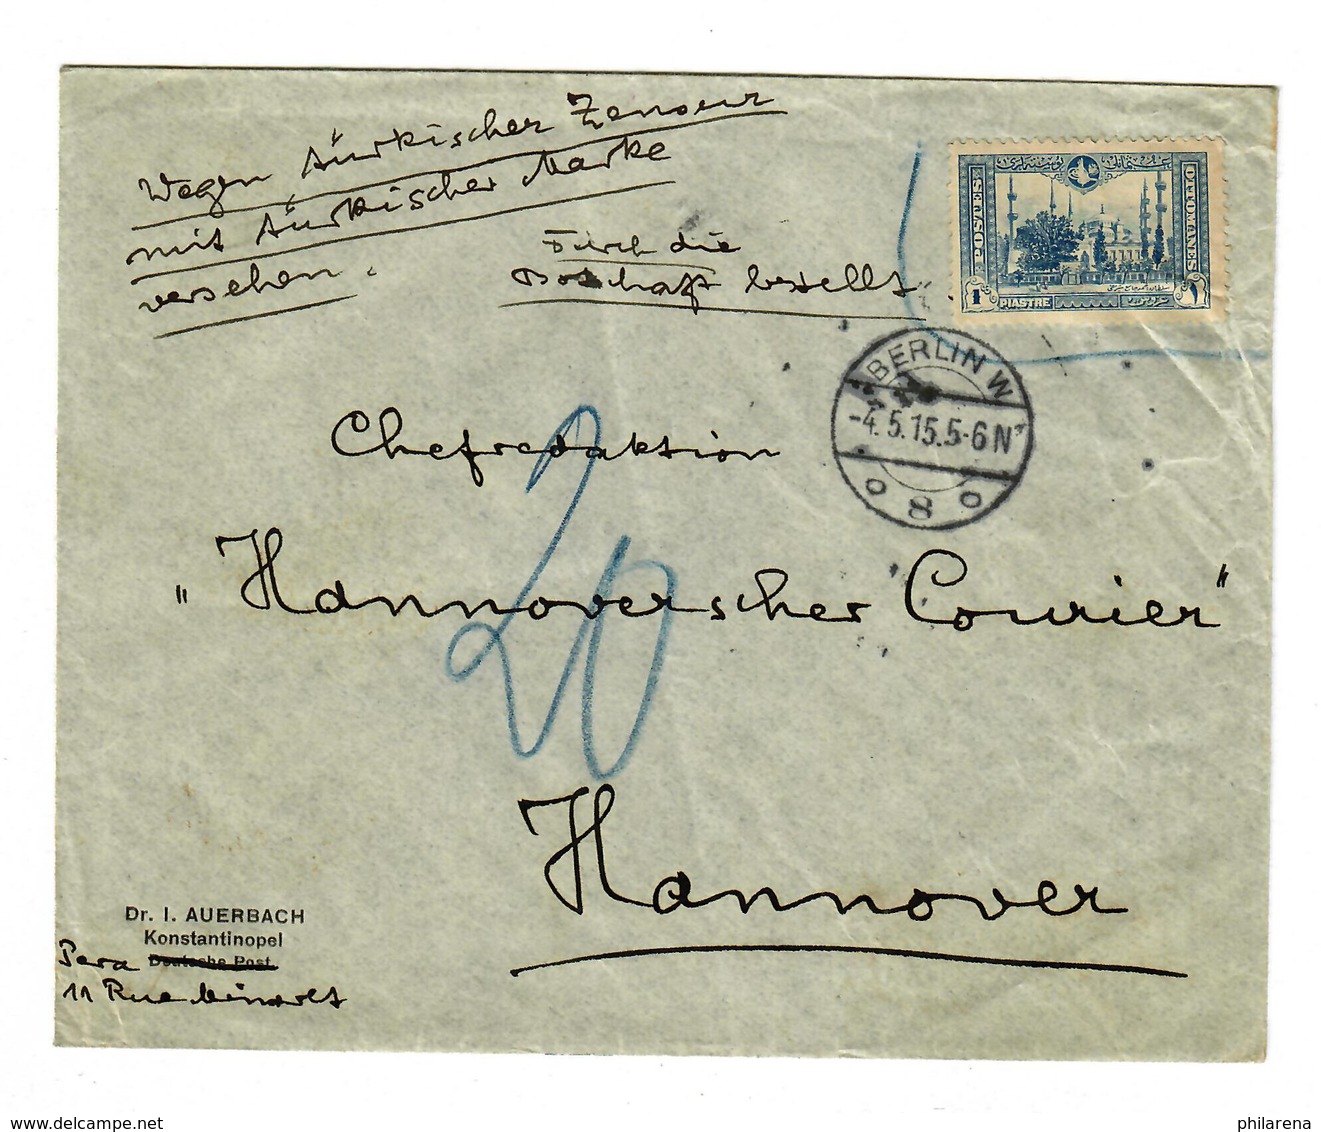 Wegen türkischer Zensur
mit türkischer Marke
versehen.
Durch die
Botschaft bestellt.
POSTES
OTTOMANES
1 PIASTRE ١
BERLIN W
-4.5.15.5-6N*
o 8 o
20
Chefredaktion
"Hannoverscher Courier"
Hannover
Dr. I. AUERBACH
Konstantinopel
Deutsche Post.
Pera
11 Rue Minaret
delcampe.net
philarena